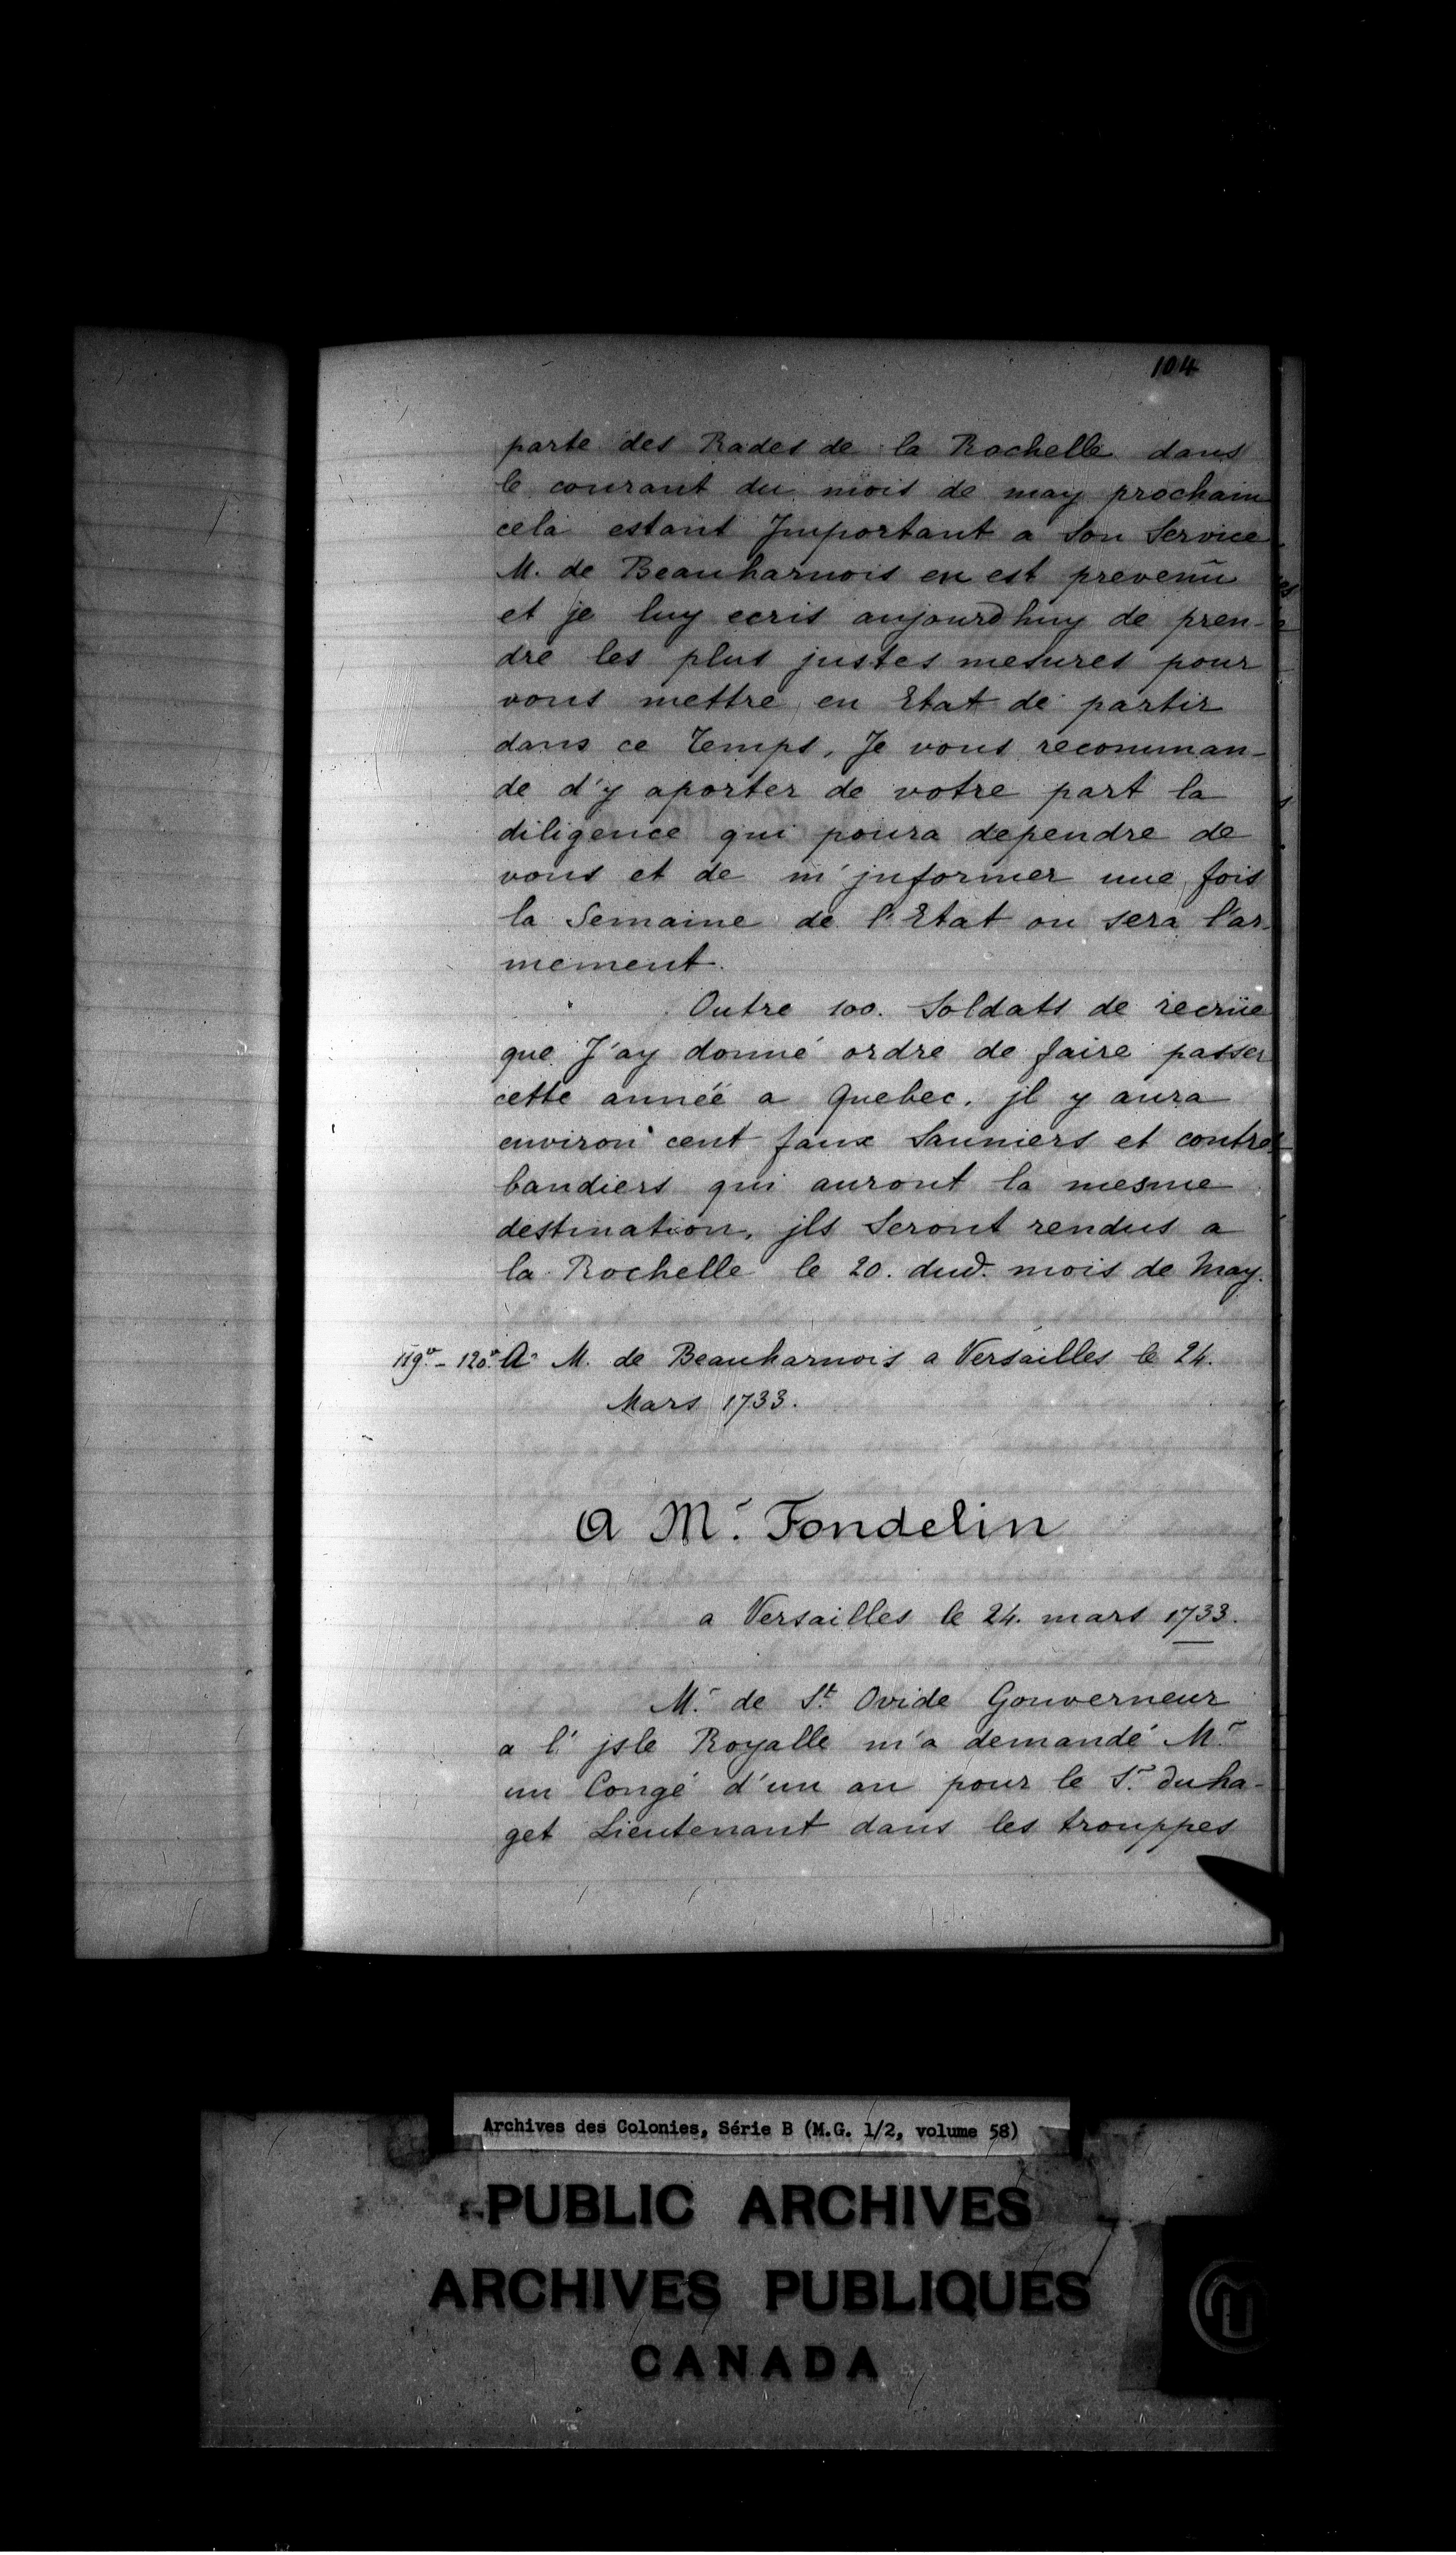 104
parte des Rades de la Rochelle dans
le courant du mois de may prochain
cela estant Jmportant a Son Service
M. de Beauharnois en est prevenû
et je luy ecris aujourdhuy de pren-
dre les plus justes mesures pour
vous mettre en Etat de partir
dans ce Temps, Je vous recomman-
de d'y aporter de votre part la
diligence qui poura dependre de
vous et de m'jnformer une fois
la Semaine de l'Etat ou sera l'ar-
mement.
Outre 100. Soldats de recrüe
que J'ay donné ordre de faire passer
cette année a Quebec, jl y aura
environ cent faux Sauniers et contre-
bandiers qui auront la mesme
destination, jls Seront rendus a
la Rochelle le 20. dud. mois de May.
119vo - 120vo A M. de Beauharnois a Versailles le 24.
Mars 1733.
A Mr. Fondelin
a Versailles le 24. mars 1733.
Mr. de St. Ovide Gouverneur
a l'jsle Royalle m'a demandé Mr.
un Congé d'un an pour le Sr. duha-
get Lieutenant dans les trouppes
Archives des Colonies, Série B (M.G. 1/2, volume 58)
PUBLIC ARCHIVES
ARCHIVES PUBLIQUES
CANADA